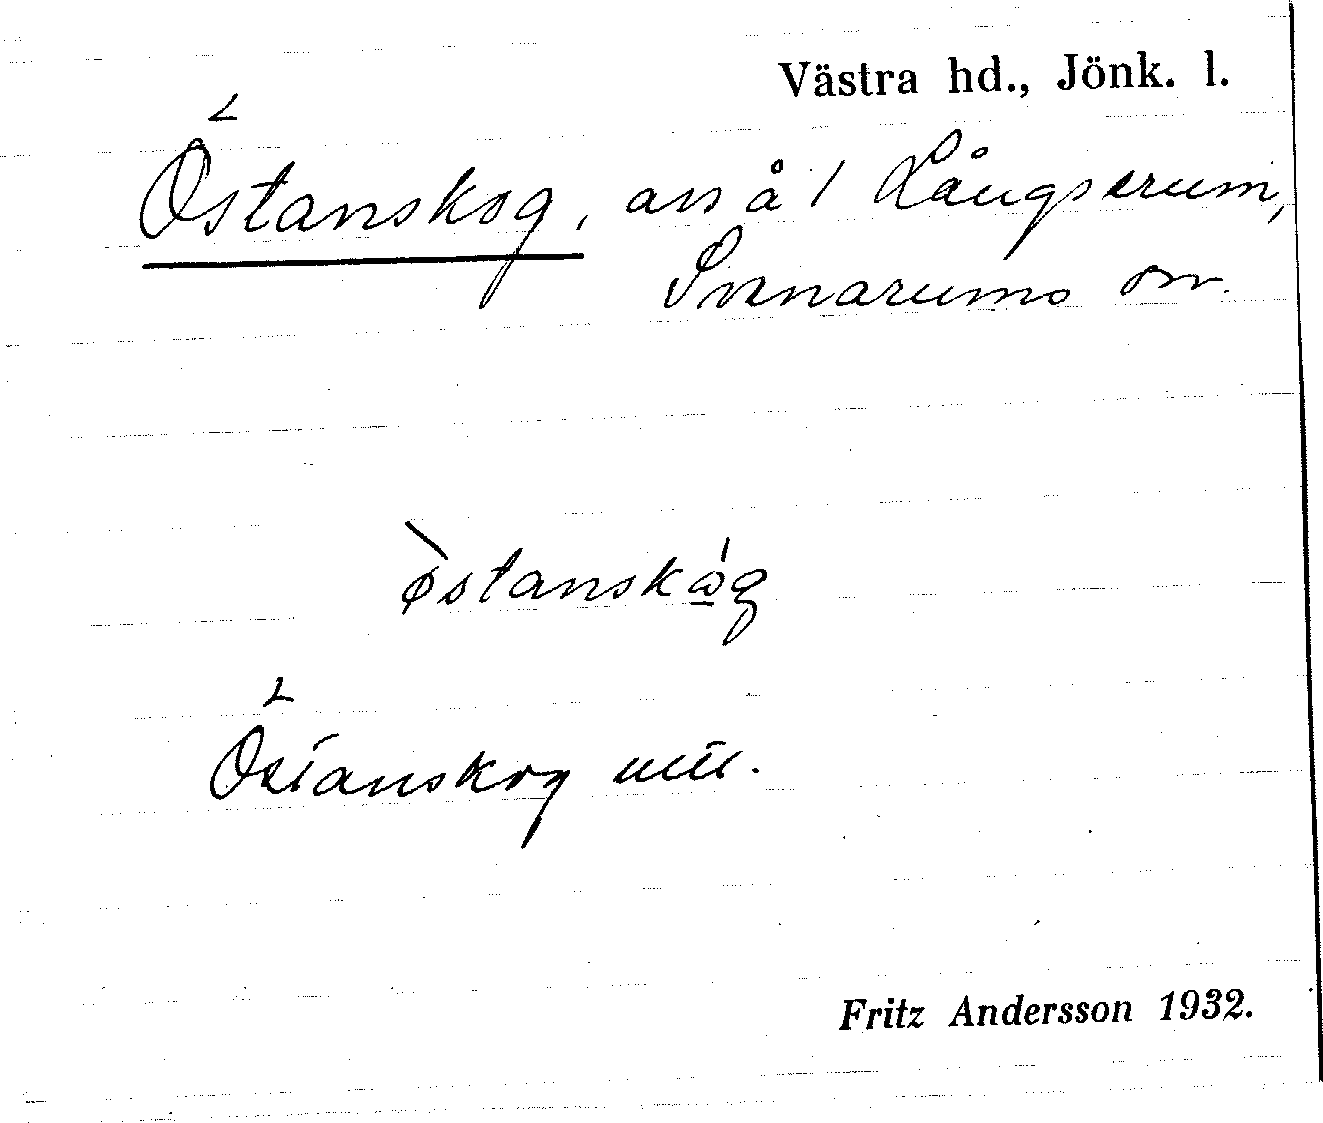 Västra hd., Jönk. l.
Östanskog, avs å 1 Långserum,
Svenarums sn.
östanskåg
Östanskog
Fritz Andersson 1932.